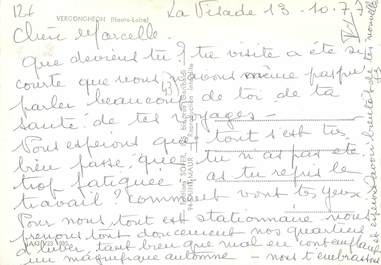 VERGONGHEON (Haute-Loire)
La Visade 13-10-77
Chère Marcelle.
Que deviens tu? ta visite a été si
courte que nous n'avons même pas pu
parler beaucoup de toi de ta
santé de tes voyages -
Nous espérons que tout s'est
bien passé que tu n'as pas été
trop fatiguée as tu repris le
travail? comment vont tes yeux.
Pour nous tout est stationnaire nous
prenons tout doucement nos quartiers
d'hiver, tant bien que mal en contemplant
un magnifique automne - nous t'embrassons
et espérons avoir bientôt de tes nouvelles